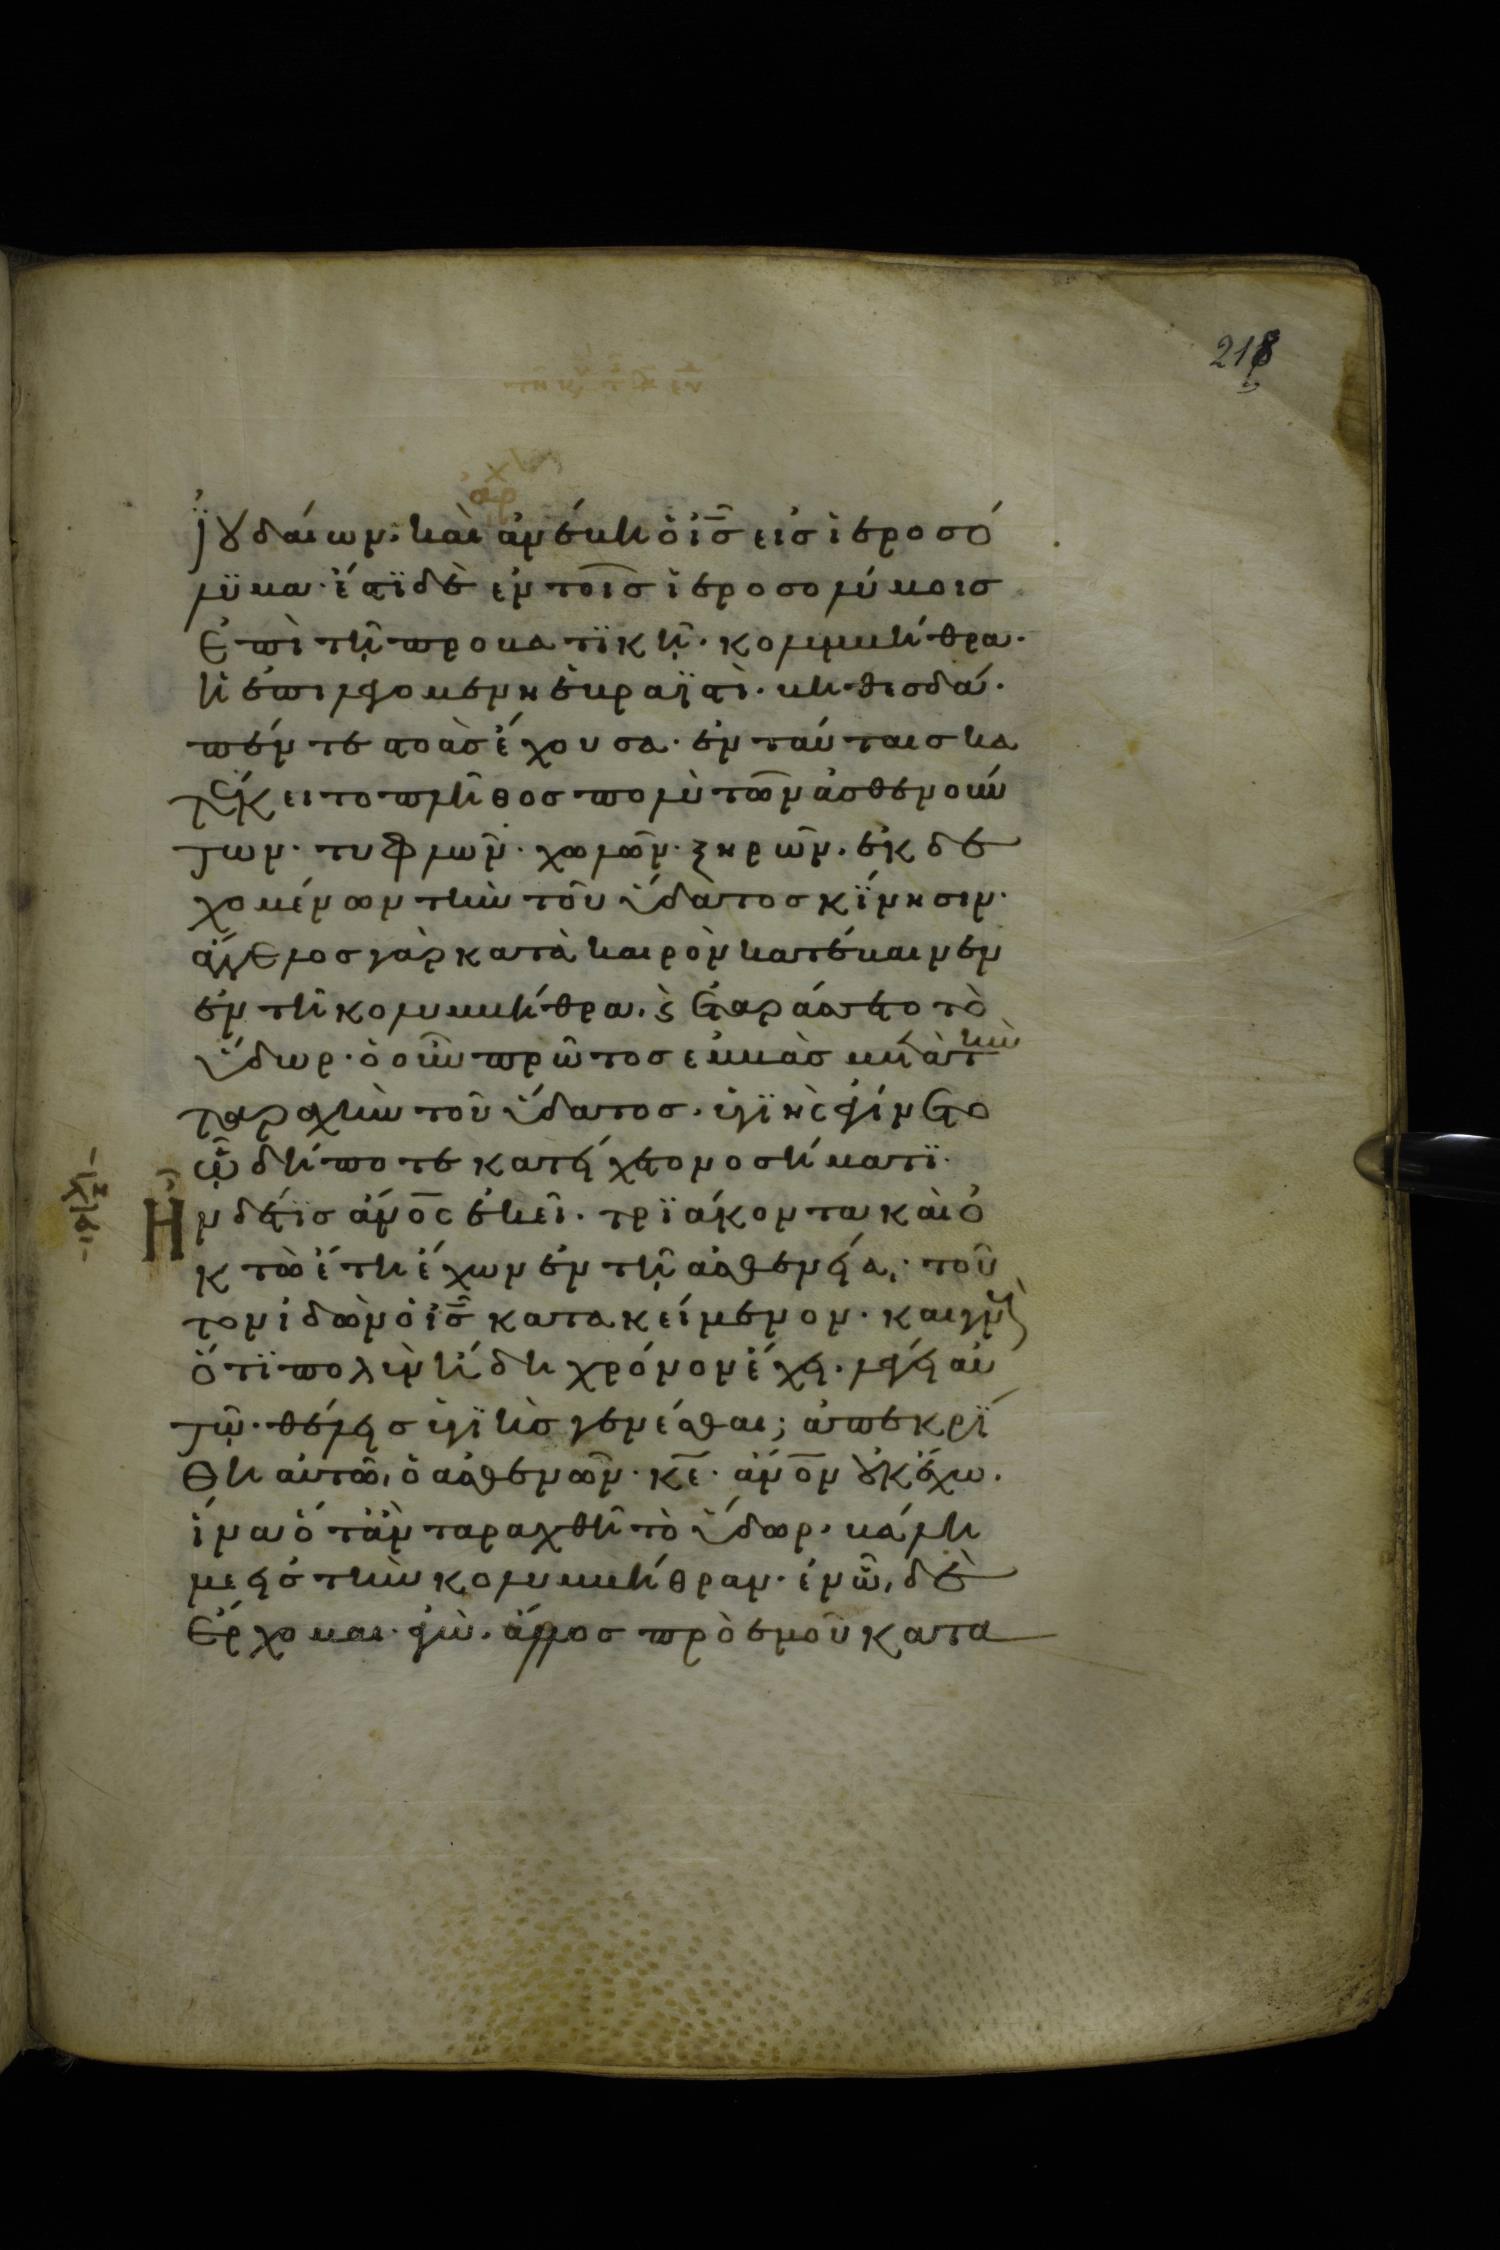 218
ἀρχ
ἰουδαίων· καὶ ἀνέβη ὁ ἰς εἰς ἱεροσό
λϋμα· ἔστϊ δὲ ἐν τοῖς ἱεροσολύμοις
ἐπὶ τῇ προβατϊκῇ· κολυμβήθρα·
ἡ ἐπιλεγομένη ἑβραϊστὶ· βηθεσδά·
πέντε στοὰς ἔχουσα· ἐν ταύταις κα
τέκειτο πλῆθος πολὺ τῶν ἀσθενούν
των· τυφλῶν· χωλῶν· ξηρῶν· ἐκδε
χομένων τὴν τοῦ ὕδατος κίνησιν·
ἄγγελος γὰρ κατὰ καιρὸν κατέβαινεν
ἐν τῇ κολυμβήθρα· ϗ ἐταράσσετο τὸ
ὕδωρ· ὁ οὖν πρῶτος ἐμβὰς μετὰ τὴν
ταραχὴν τοῦ ὕδατος· ὑγϊὴς ἐγίνετο
ᾧ δήποτε κατείχετο νοσήματϊ·
ἦν δέ τϊς ἄνος ἐκεῖ· τρϊάκοντα καὶ ὀ
κτὼ ἔτη ἔχων ἐν τῇ ἀσθενείᾳ· τοῦ
τον ἰδὼν ὁ ἰς κατακείμενον· καὶ γνοὺς
ὅτϊ πολὺν ἤδη χρόνον ἔχει· λέγει αὐ
τῷ· θέλεις ὑγϊὴς γενέσθαι; ἀπεκρΐ
θη αὐτῶ, ὁ ἀσθενῶν· κε· ἄνον οὐκ ἔχω·
ἵνα ὅταν ταραχθῇ τὸ ὕδωρ· βάλη
με εἰς τὴν κολυμβήθραν· ἐν ᾧ, δὲ
ἔρχομαι ἐγὼ· ἄλλος πρὸ ἐμοῦ κατα